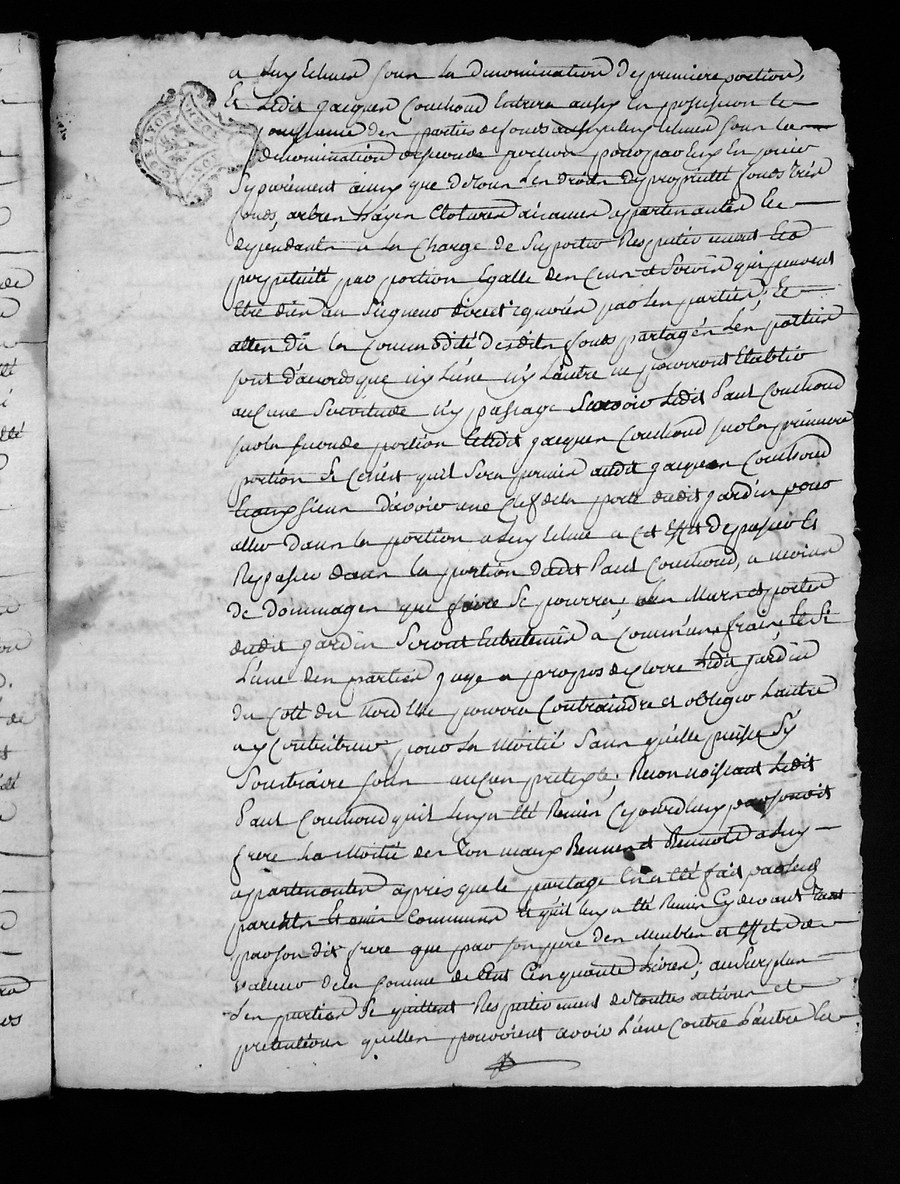 a luy Echues sous la denomination de premiere portion,
Et Ledit Jacques Couchoud Entrera aussy En possession Et
jouissance des parties de fonds aussy a luy Echues sous la
denomination de seconde portion pour par Eux En jouir
Separément ainsy que de tous Les droits de proprieté fonds tres
fonds, arbres hayes Clotures aisances appartenantes Et
dependantes a la Charge de Suporter Respectivement Et a
perpetuité par portion Egalle des Cens et Servis qui peuvent
Etre dûs au Seigneur direct ignorés par Les parties; Et
attendû la Commodité desdits fonds partagés Les parties
sont d'accord que ny L'une ny L'autre ne pourront Etablir
aucune Servitude ny passage Scavoir Ledit Paul Couchoud
sur la seconde portion Et Ledit Jacques Couchoud sur la premiere
portion Si Ce n'est qu'il Sera permis audit Jacques Couchoud
Et aux siens d'avoir une Clef de la porte dudit jardin pour
aller dans la portion a luy Echue a Cet Effet de passer Et
Repasser dans la portion dudit Paul Couchoud, a moins
de dommages que faire Se pourra; Les Murs et portes
dudit jardin Seront Entretenus a Communs fraix, Et Si
L'une des parties juge a propos de Clorre Ledit jardin
du Coté du Nord Elle pourra Contraindre et obliger L'autre
a y Contribuer pour La Moitié Sans qu'elle puisse S'y
Soustraire sous aucun pretexte; Reconnoissant Ledit
Paul Couchoud qu'il luy a Eté Remis Cejourd'huy par sondit
frere La Moitié des Tonneaux Bennes et Bennots a luy
appartenantes apres que le partage En a Eté fait par Leurs
parents Et amis Communs Et qu'il luy a Eté Remis Cydevant Tant
par son dit frere que par son pere des Meubles et Effets de
valleur de la somme de Cent Cinquante Livres; au Surplus
Les parties Se quittent Respectivement de toutes actions et
pretentions qu'elles pouvoient avoir L'une Contre L'autre Et
DE LYON